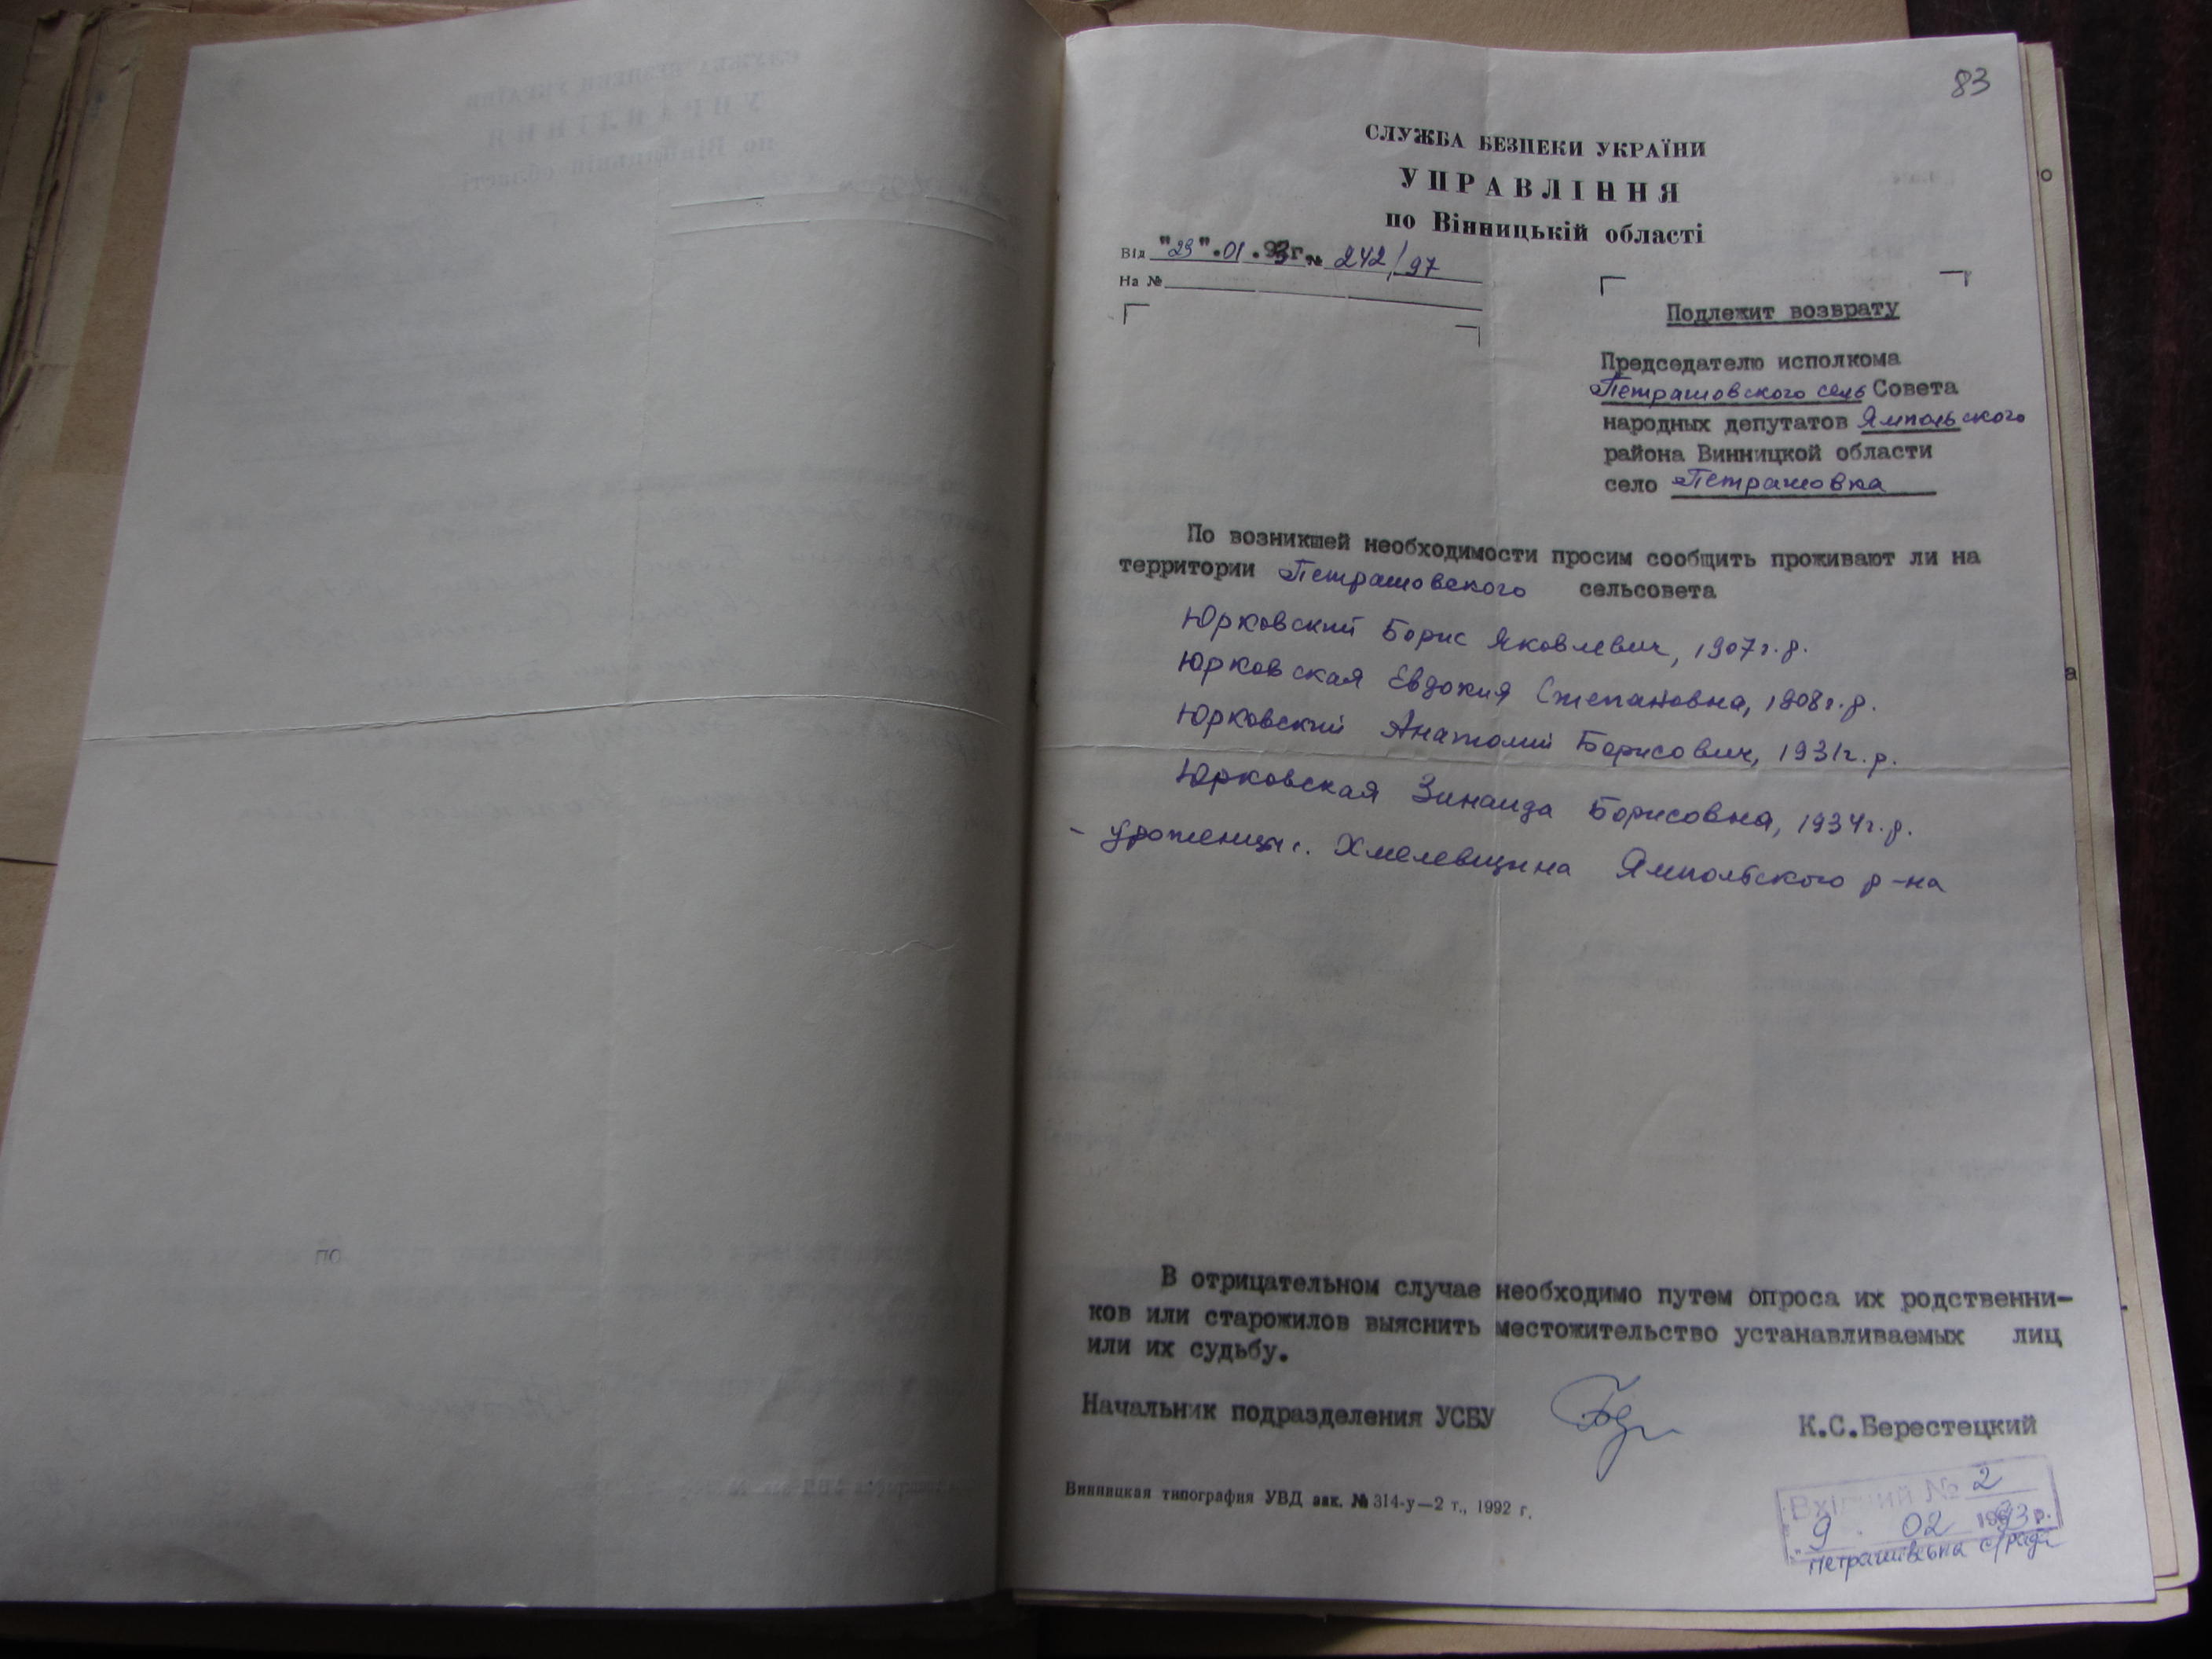 83
СЛУЖБА БЕЗПЕКИ УКРАЇНИ
УПРАВЛІННЯ
по Вінницькій області
Від "29".01.93г. № 242/97
На №
Подлежит возврату
Председателю исполкома
Петрашовского сель Совета
народных депутатов Ямпольского
района Винницкой области
село Петрашовка
По возникшей необходимости просим сообщить проживают ли на
территории Петрашовского сельсовета
Юрковский Борис Яковлевич, 1907г.р.
Юрковская Евдокия Степановна, 1908г.р.
Юрковский Анатолий Борисович, 1931г.р.
Юрковская Зинаида Борисовна, 1934г.р.
- уроженцы с. Хмелевщина Ямпольского р-на
В отрицательном случае необходимо путем опроса их родственни-
ков или старожилов выяснить местожительство устанавливаемых лиц
или их судьбу.
Начальник подразделения УСБУ К.С.Берестецкий
Винницкая типография УВД зак. № 314-у—2 т., 1992 г.
Вхідний № 2
"9" 02 1993 р.
Петрашівська с/рада